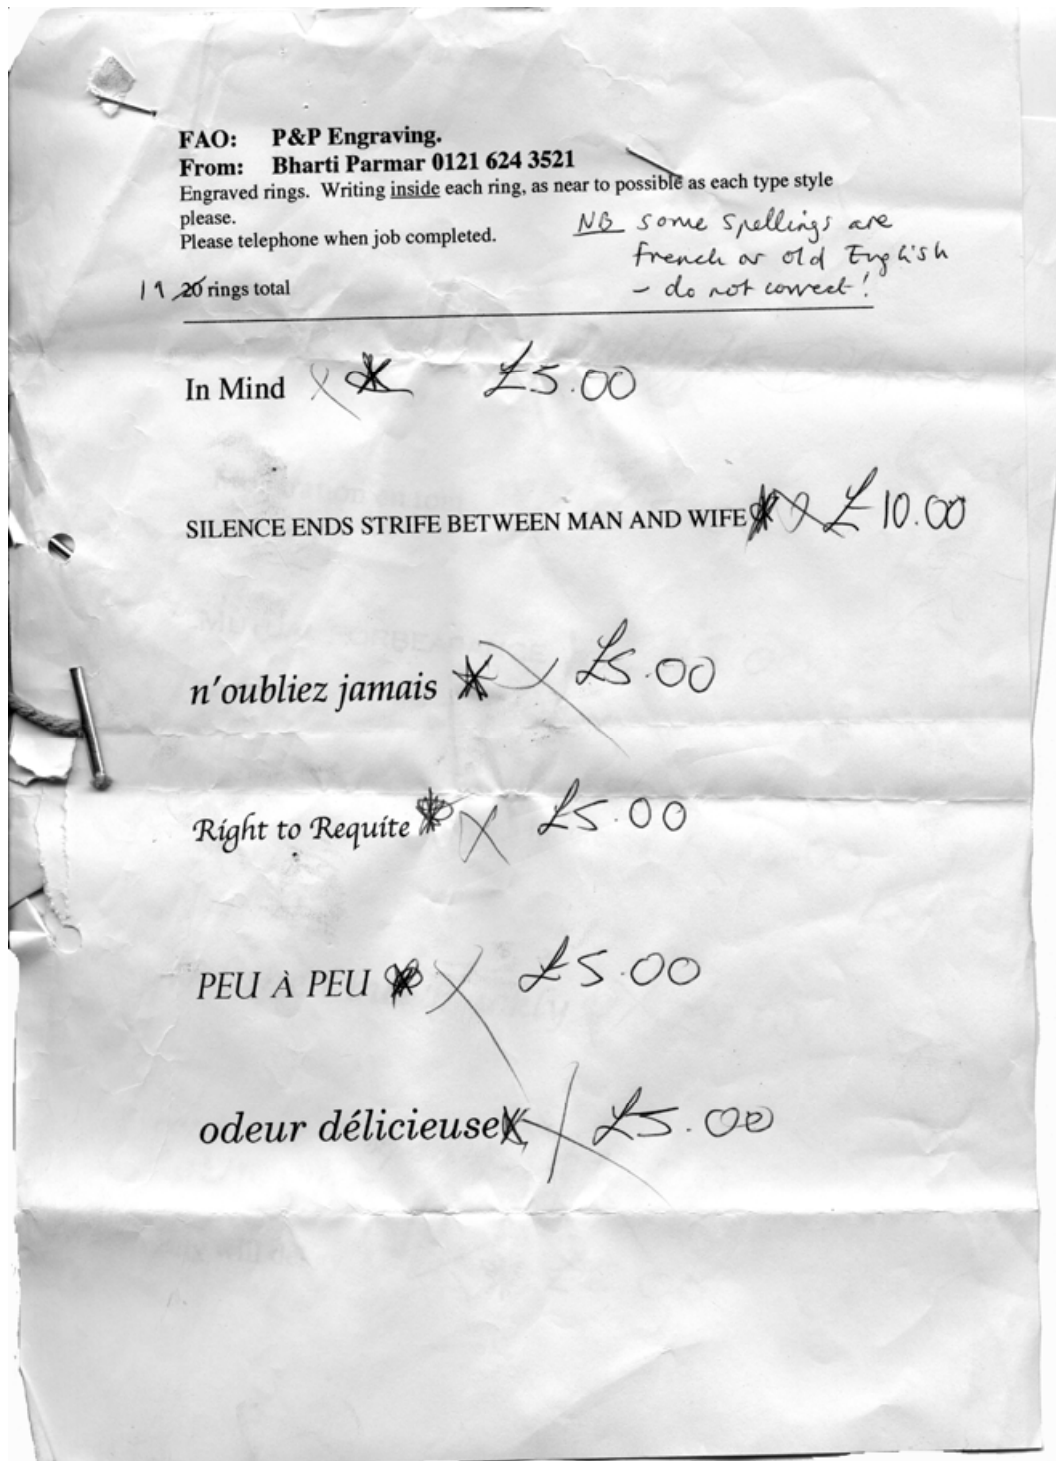 FAO: P&P Engraving.
From: Bharti Parmar 0121 624 3521
Engraved rings. Writing inside each ring, as near to possible as each type style
please.
Please telephone when job completed.
NB some spellings are
french or old English
- do not correct!
19 20 rings total
In Mind £5.00
SILENCE ENDS STRIFE BETWEEN MAN AND WIFE £10.00
n'oubliez jamais £5.00
Right to Requite £5.00
PEU À PEU £5.00
odeur délicieuse £5.00